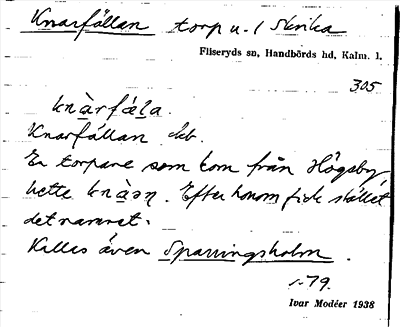 Knarfällan torp u. 1 Skrika
Fliseryds sn, Handbörds hd, Kalm. l.
305
knàrfäla.
Knarfällan kb.
En torpare som kom från Högsby
hette knàən. Efter honom fick stället
det namnet.
Kallas även Sparringsholm.
s. 79.
Ivar Modéer 1938